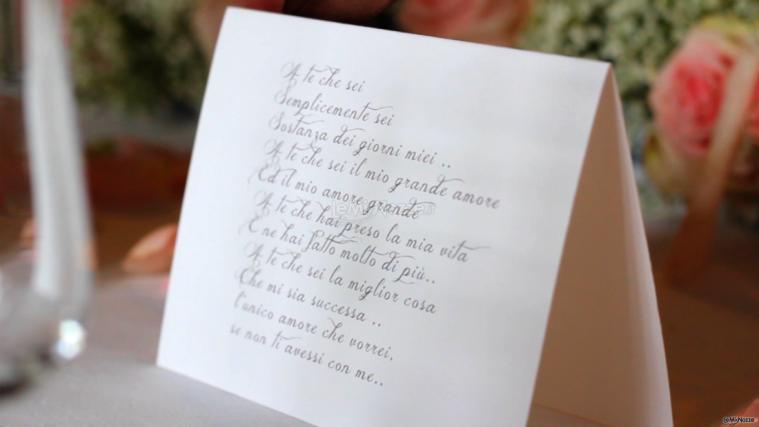 A te che sei
Semplicemente sei
Sostanza dei giorni miei ..
A te che sei il mio grande amore
Ed il mio amore grande
A te che hai preso la mia vita
E ne hai fatto molto di più..
A te che sei la miglior cosa
Che mi sia successa ..
l'unico amore che vorrei,
se non ti avessi con me..